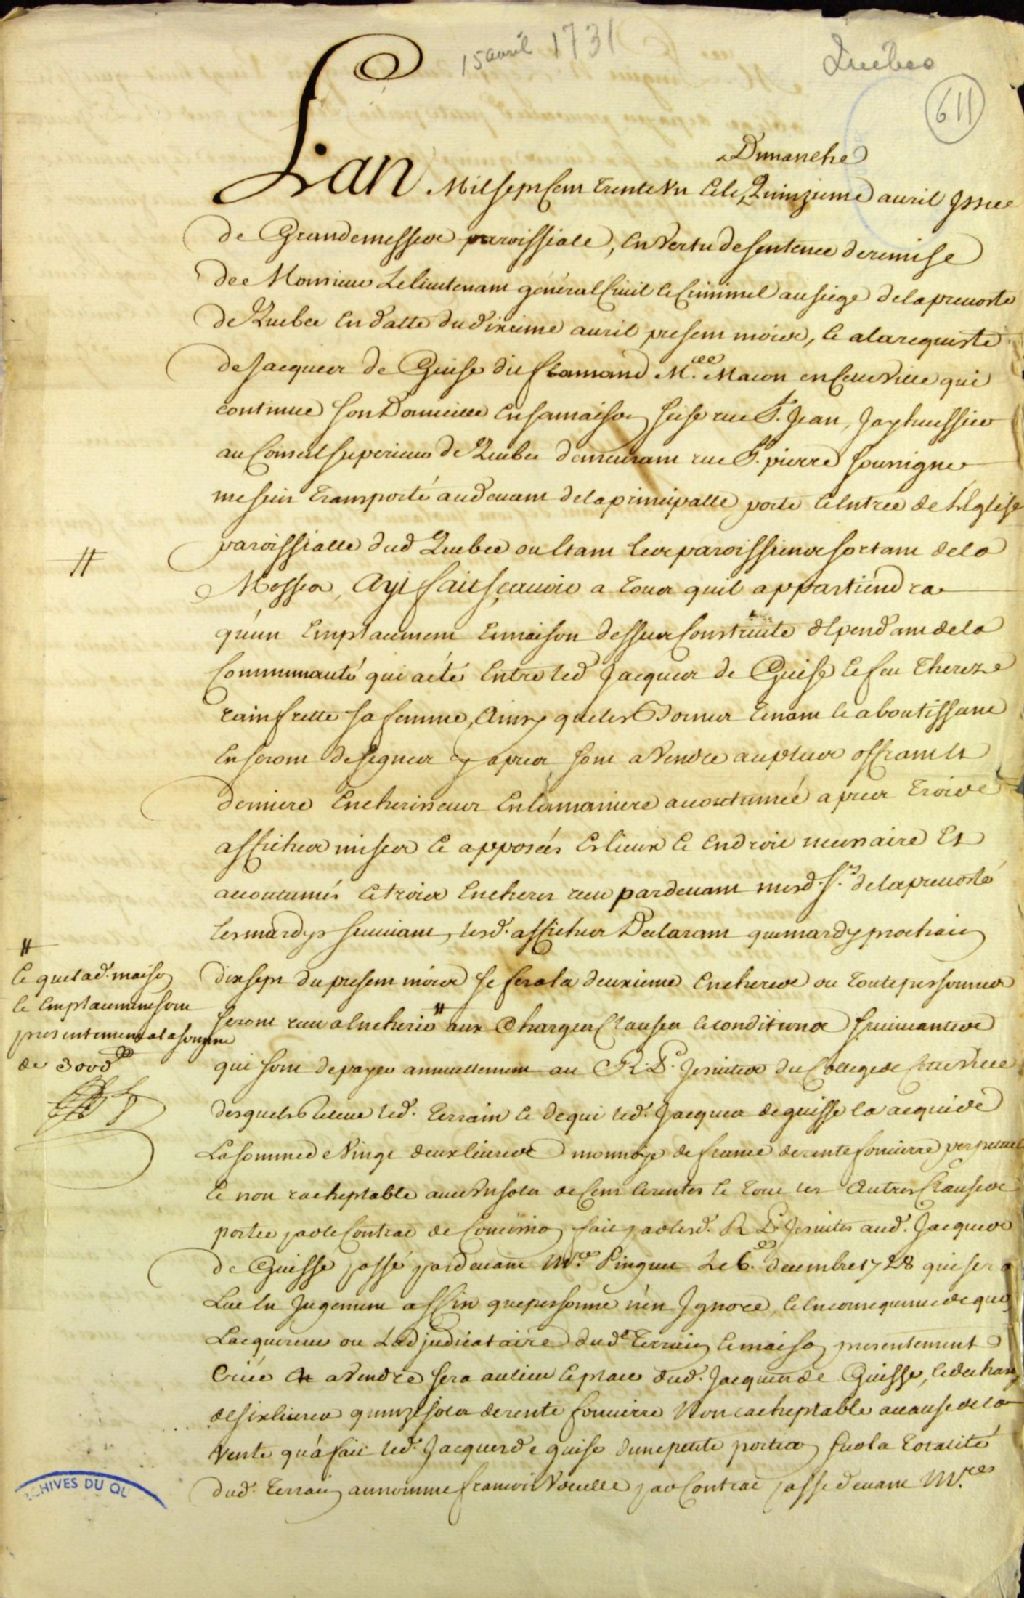 15 avril 1731
Québec
611
Dimanche
Lan Mil sept Cent trente Un et le Quinzieme avril Issue
de Grandemesse paroissiale, En Vertu de sentence de remise
de Monsieur Le lieutenant général Civil et Criminel au siege de la prevosté
de Quebec En datte du dixieme avril present mois, et a la requeste
de Jacques de Guise dit flamand Me. Macon en Cette Ville qui
continue son Domicille En sa maison scise rue St. Jean, Jay huissier
au Conseil superieur de Quebec demeurant rue St. pierre soussigné
me suis transporté audevant de la principalle porte et Entrée de L'Eglise
paroissialle dud Quebec ou Etant les paroissiens sortant de la
#
Messe, Ayt fait sçavoir a tous quil appartiendra
qu'un Emplacement et maison dessus Construite dependant de la
Communauté qui a eté Entre led Jacques de Guise et feu Thereze
rainfrette sa femme, Ainsy que les Bornes tenant et aboutissant
En seront designez cy apres sont a Vendre au plus offrant et
dernier Encherisseur En la maniere acoutumée apres trois
affiches mises et apposées Es lieux et Endroit necessaire Et
acoutumés et trois Encheres receu pardevant mesd. Srs. de la prevosté
les mardys suivant, lesd. affiches Declarant que mardy prochain
dix sept du present mois se fera la deuxieme Enchere ou toute personnes
seront receu a Encherir # aux Charges Clauses et conditions suivantes
#
et que lad. maison
et Emplacement sont
presentement a la somme
de 300 #
qui sont de payer annuellement au R. P. Jesuites du College de Cette Ville
desquels releve led. terrain et de qui led. Jacques de guisse la acquis
La somme de Vingt deux livres monnoye de france de rente fonciere perpetuel
et non racheptable avec Un sols de Cens et rentes le tout et Autres Clauses
portée par le Contrat de Concession fait par lesd. R. P. Jesuites aud. Jacques
de Guisse passé pardevant Mre. Pinguet Le 6e. decembre 1728 qui sera
Lue En Jugement affin que personne n'en Ignore, et En consequence de quoy
L'acquereur ou L'adjudicataire dud. terrain et maison presentement
Criée et a Vendre sera au lieu et place dud. Jacques de Guisse, et dechargé
de six livres quinze sols de rente fonciere Non racheptable a cause de la
Vente qu'a fait led. Jacques de guise d'une petite portion sur la totalité
dud. terrain au nommé francois Vocelle par Contrat passé devant Mre.
ARCHIVES DU QC